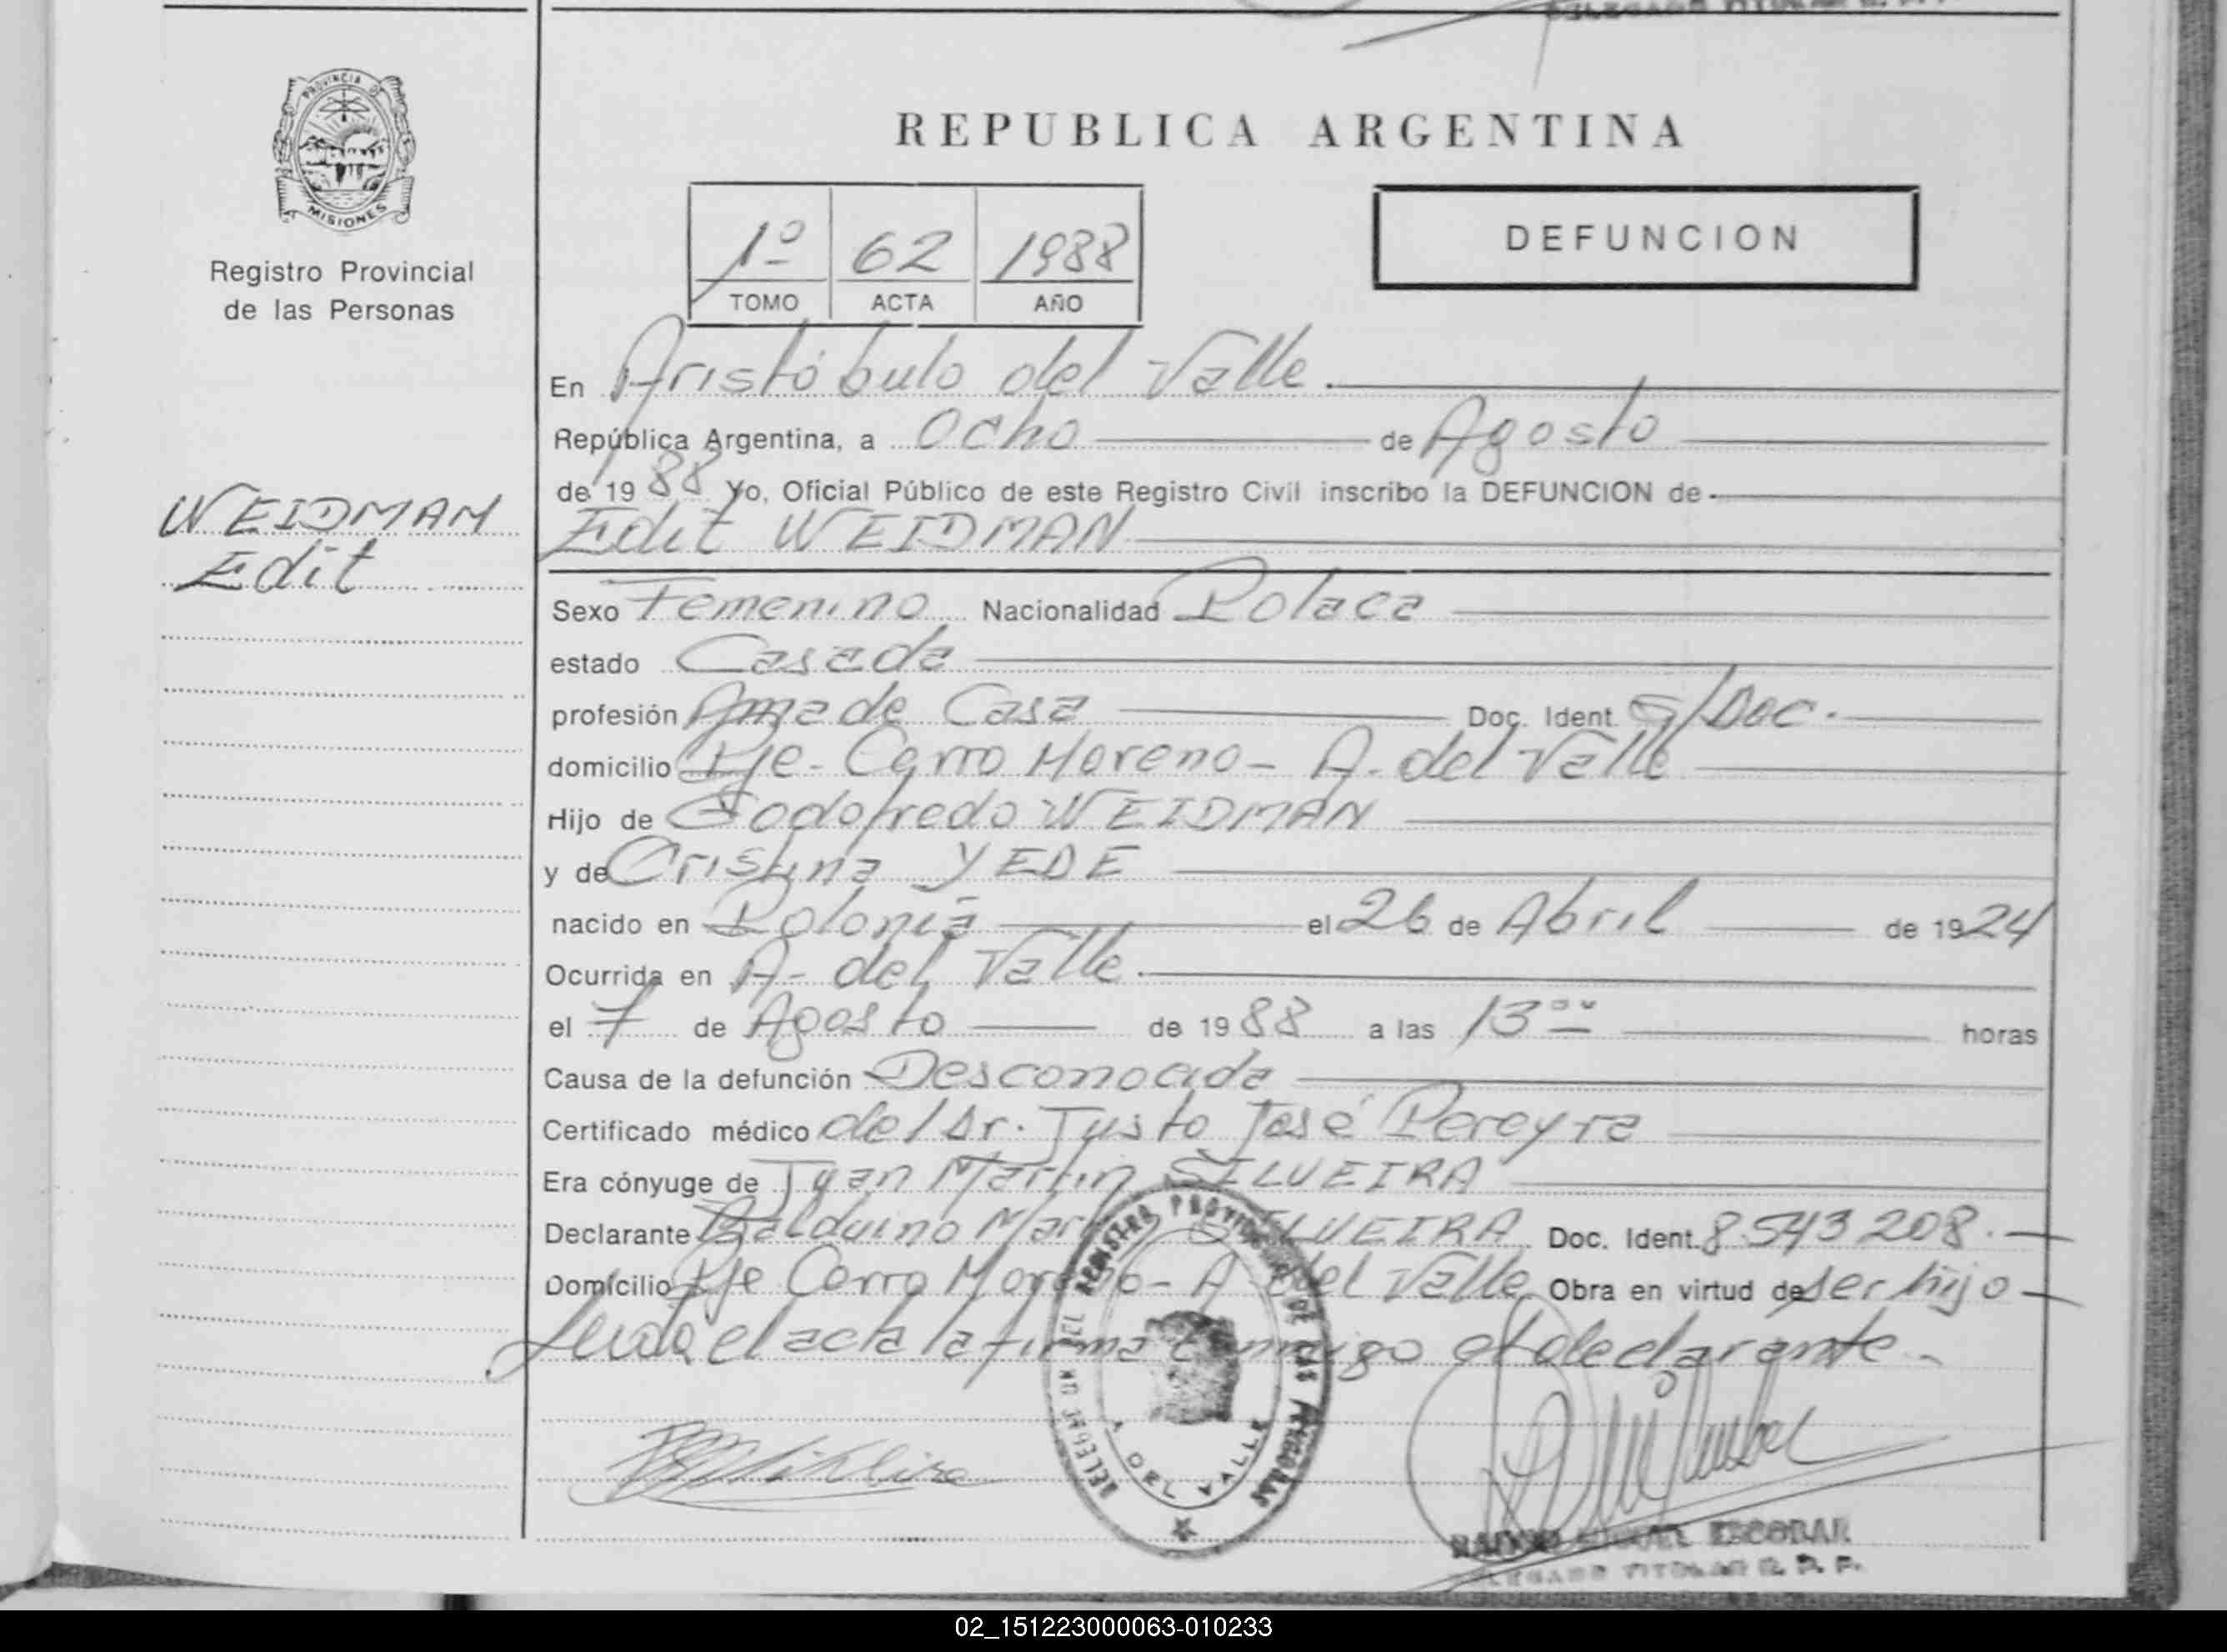 PROVINCIA DE
MISIONES
Registro Provincial
de las Personas
WEIDMAN
Edit
REPUBLICA ARGENTINA
1º 62 1988
TOMO ACTA AÑO
DEFUNCION
En Aristóbulo del Valle.
República Argentina, a Ocho de Agosto
de 1988 Yo, Oficial Público de este Registro Civil inscribo la DEFUNCION de
Edit WEIDMAN
Sexo Femenino Nacionalidad Polaca
estado Casada
profesión Ama de Casa Doc. Ident. S/Doc.
domicilio Pje- Cerro Moreno- A. del Valle
Hijo de Godofredo WEIDMAN
y de Cristina YEDE
nacido en Polonia el 26 de Abril de 1924
Ocurrida en A- del Valle.
el 7 de Agosto de 1988 a las 13 horas
Causa de la defunción Desconocida
Certificado médico del Dr. Justo José Pereyra
Era cónyuge de Juan Martin SILVEIRA
Declarante Balduino SILVEIRA Doc. Ident. 8.543 208.-
Domicilio Pje Cerro Moreno- A del Valle Obra en virtud de ser hijo -
Leida el acta la firma conmigo el declarante.-
REGISTRO PROVINCIAL DE LAS PERSONAS
A DEL VALLE
MIGUEL ESCOBAR
DELEGADO TITULAR R. P. P.
02_151223000063-010233